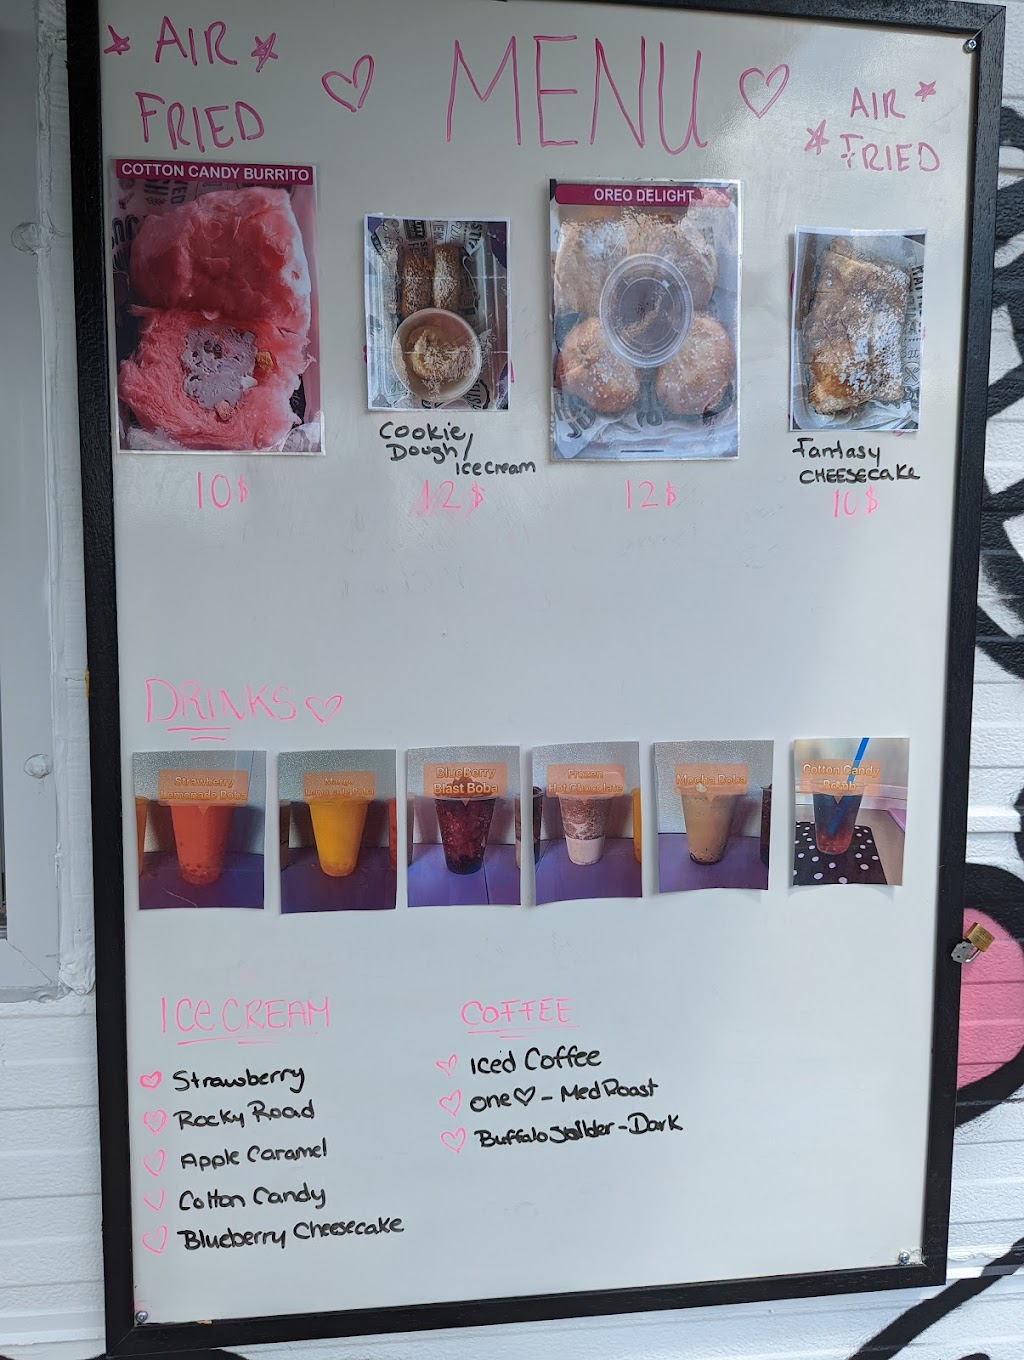 AIR
FRIED
MENU
AIR
FRIED
COTTON CANDY BURRITO
OREO DELIGHT
Cookie
Dough/
Ice Cream
Fantasy
CHEESECAKE
10$
12$
12$
10$
DRINKS
Strawberry
Lemonade Boba
Blueberry
Blast Boba
Frozen
Hot Chocolate
Mocha Boba
Cotton Candy
Bomb
ICE CREAM
Strawberry
Rocky Road
Apple Caramel
Cotton Candy
Blueberry Cheesecake
COFFEE
Iced Coffee
One♡ - Med Roast
Buffalo - Dark